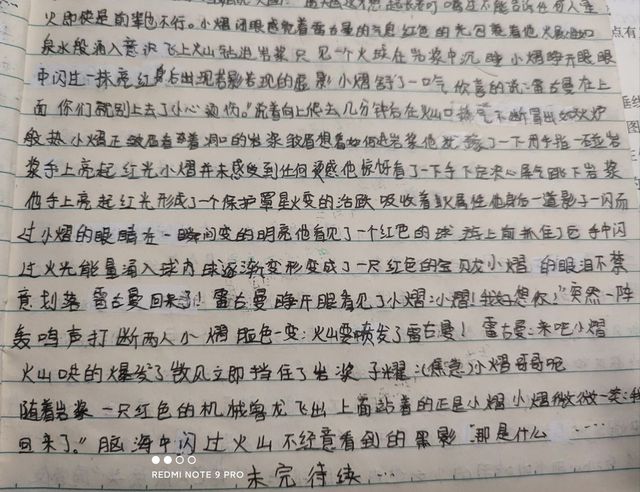 火即使是前辈也不行。小熠闭眼感知着雷古曼的气息红色的光包裹着他火属性如
泉水般涌入意识飞上火山钻进岩浆只见一个火球在岩浆中沉睡小熠睁开眼眼
中闪过一抹亮红身后出现若影若现的虚影小熠舒了一口气欣喜的说:雷古曼在上
面你们就别上去了小心烫伤。"说着向上爬去几分钟后在火山口热气不断冒出如火炉
般热小熠正皱眉看着洞口的岩浆皱眉想着如何进岩浆他犹豫了一下用手指一碰岩
浆手上亮起红光小熠并未感受到任何烫感他惊讶看了一下手下定决心屏气跳下岩浆
他手上亮起红光形成了一个保护罩是火变的活跃吸收着火属性他身后一道影子一闪而
过小熠的眼睛在一瞬间变的明亮他看见了一个红色的球游上前抓住了它手中闪
过火光能量涌入球内球逐渐变形变成了一只红色的宝贝龙小熠的眼泪不禁
意划落雷古曼回来了!雷古曼睁开眼看见了小熠:小熠!我好想你!"突然一阵
轰鸣声打断两人小熠脸色一变:火山要喷发了雷古曼!雷古曼:来吧小熠
火山哄的爆发了微风立即挡住了岩浆子耀:(焦急)小熠哥哥呢
随着岩浆一只红色的机械兽龙飞出上面站着的正是小熠小熠微微一笑:我
回来了。"脑海中闪过火山不经意看到的黑影那是什么
未完待续…
REDMI NOTE 9 PRO